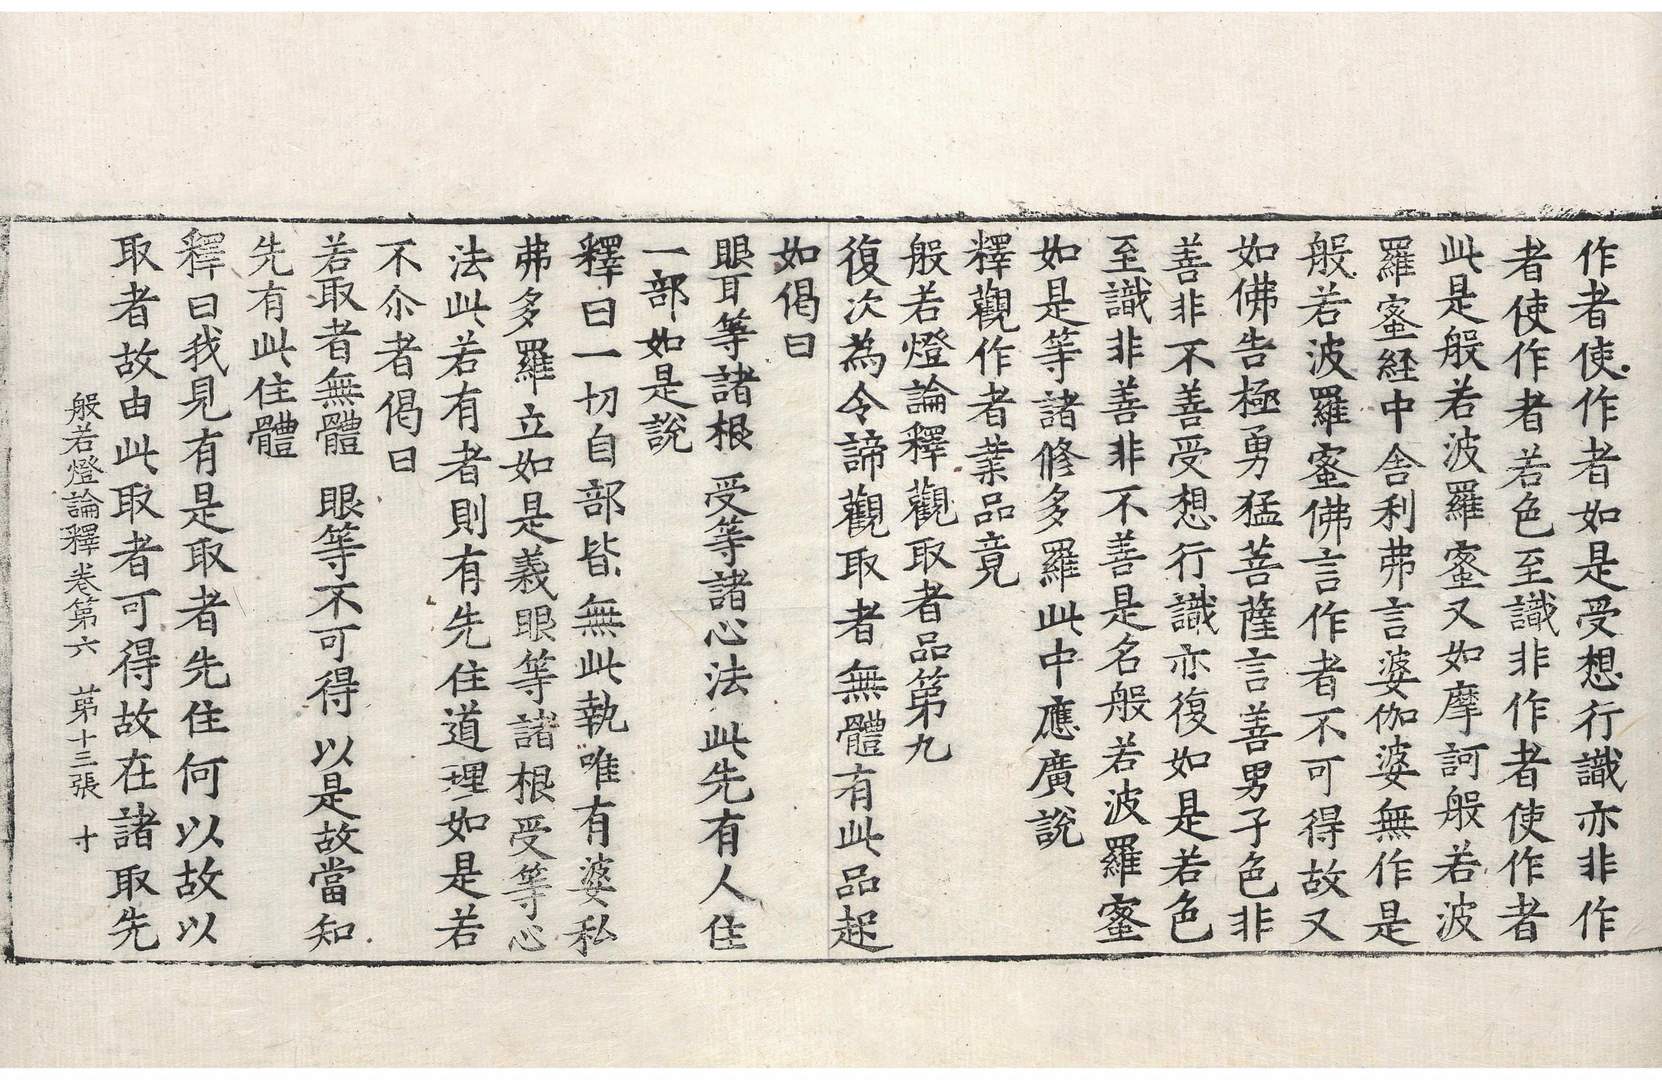 作者使作者如是受想行識亦非作
者使作者若色至識非作者使作者
此是般若波羅蜜又如摩訶般若波
羅蜜經中舍利弗言婆伽婆無作是
般若波羅蜜佛言作者不可得故又
如佛告極勇猛菩薩言善男子色非
善非不善受想行識亦復如是若色
至識非善非不善是名般若波羅蜜
如是等諸修多羅此中應廣說
釋觀作者業品竟
般若燈論釋觀取者品第九
復次為令諦觀取者無體有此品起
如偈曰
眼耳等諸根 受等諸心法 此先有人住
一部如是說
釋曰一切自部皆無此執唯有婆私
弗多羅立如是義眼等諸根受等心
法此若有者則有先住道理如是若
不尒者偈曰
若取者無體 眼等不可得 以是故當知
先有此住體
釋曰我見有是取者先住何以故以
取者故由此取者可得故在諸取先
般若燈論釋卷第六 苐十三張 寸